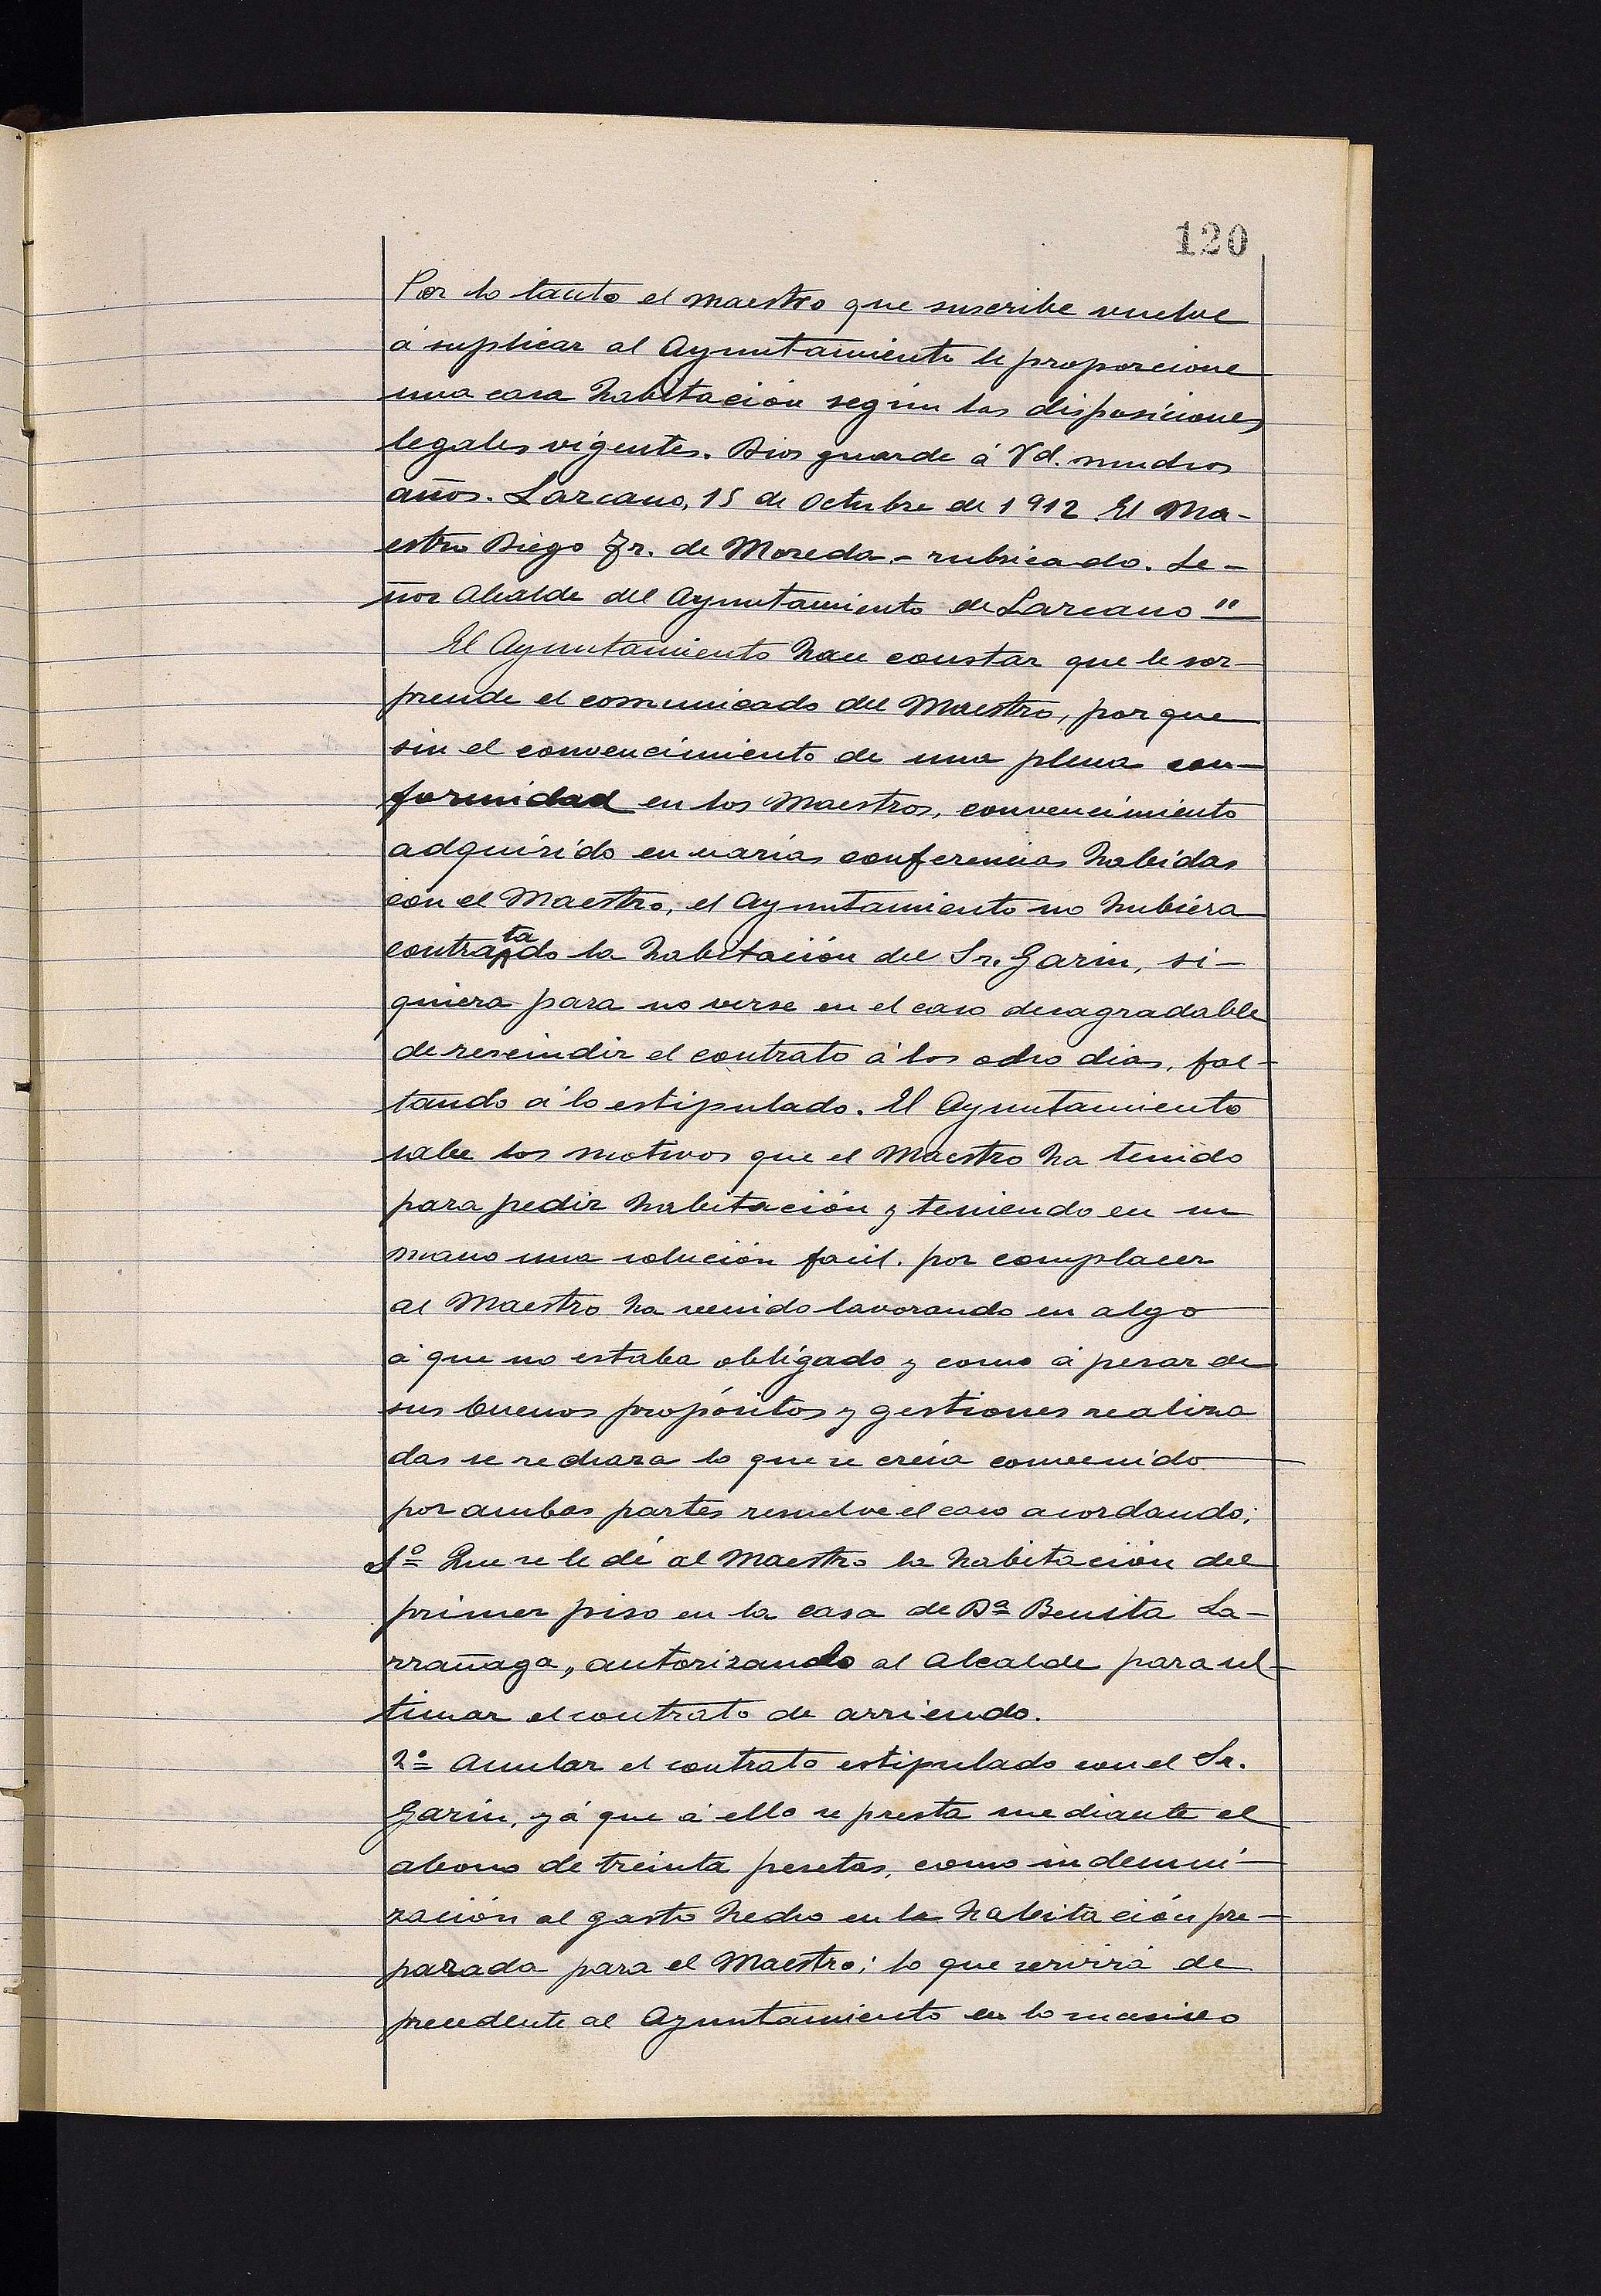 120
Por lo tanto el maestro que suscribe vuelve
á suplicar al Ayuntamiento le proporcione
una casa habitación según las disposiciones
legales vigentes. Dios guarde á Vd. muchos
años. Lazcano, 15 de Octubre de 1912. El Ma-
estro Diego Fr. de Moreda.- rubricado. Se-
ñor Alcalde del Ayuntamiento de Lazcano "
El Ayuntamiento hace constar que le sor-
prende el comunicado del Maestro, por que
sin el convencimiento de una plena con-
formidad en los Maestros, convencimiento
adquirido en varias conferencias habidas
con el Maestro, el Ayuntamiento no hubiera
contratado la habitación del Sr. Garin, si-
quiera para no verse en el caso desagradable
de rescindir el contrato á los ocho dias, fal-
tando á lo estipulado. El Ayuntamiento
sabe los motivos que el Maestro ha tenido
para pedir habitación y teniendo en su
mano una solución facil, por complacer
al Maestro ha venido lavorando en algo
á que no estaba obligado y como á pesar de
sus buenos propósitos y gestiones realiza
das se rechaza lo que se creia convenido
por ambas partes resuelve el caso acordando:
1º Que se le dé al Maestro la habitación del
primer piso en la casa de Dª Benita La-
rrañaga, autorizando al Alcalde para ul-
timar el contrato de arriendo.
2º Anular el contrato estipulado con el Sr.
Garin, yá que á ello se presta mediante el
abono de treinta pesetas, como indemni-
zación al gasto hecho en la habitación pre-
parada para el Maestro; lo que servirá de
precedente al Ayuntamiento en lo